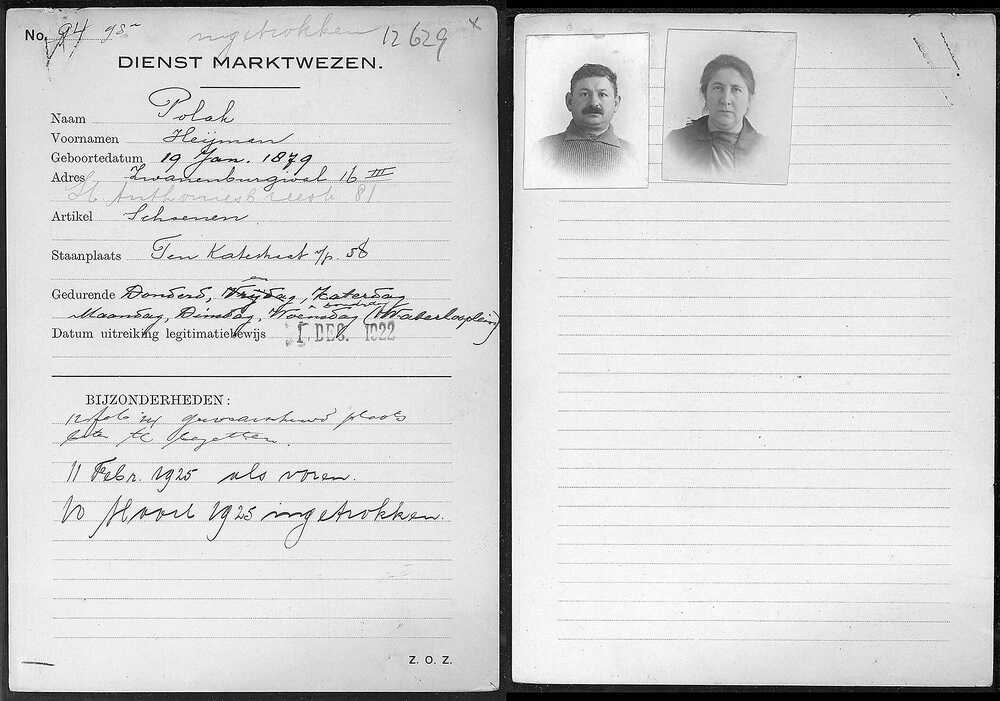 No. 94 gs- ingetrokken 12629 x
DIENST MARKTWEZEN.
Naam Polak
Voornamen Heijman
Geboortedatum 19 Jan. 1879
Adres Zwanenburgwal 16 III
St Anthoniesbreestr 81
Artikel Schoenen
Staanplaats Ten Katestraat n/p. 58
Gedurende Donderd, en Vrijdag, Zaterdag
Maandag, Dinsdag, Woensdag (Waterlooplein)
Datum uitreiking legitimatiebewijs 1 DEC. 1922
BIJZONDERHEDEN:
12 feb 24 gewaarschuwd plaats
beter te bezetten.
11 Febr. 1925 als voren.
10 Maart 1925 ingetrokken.
Z. O. Z.